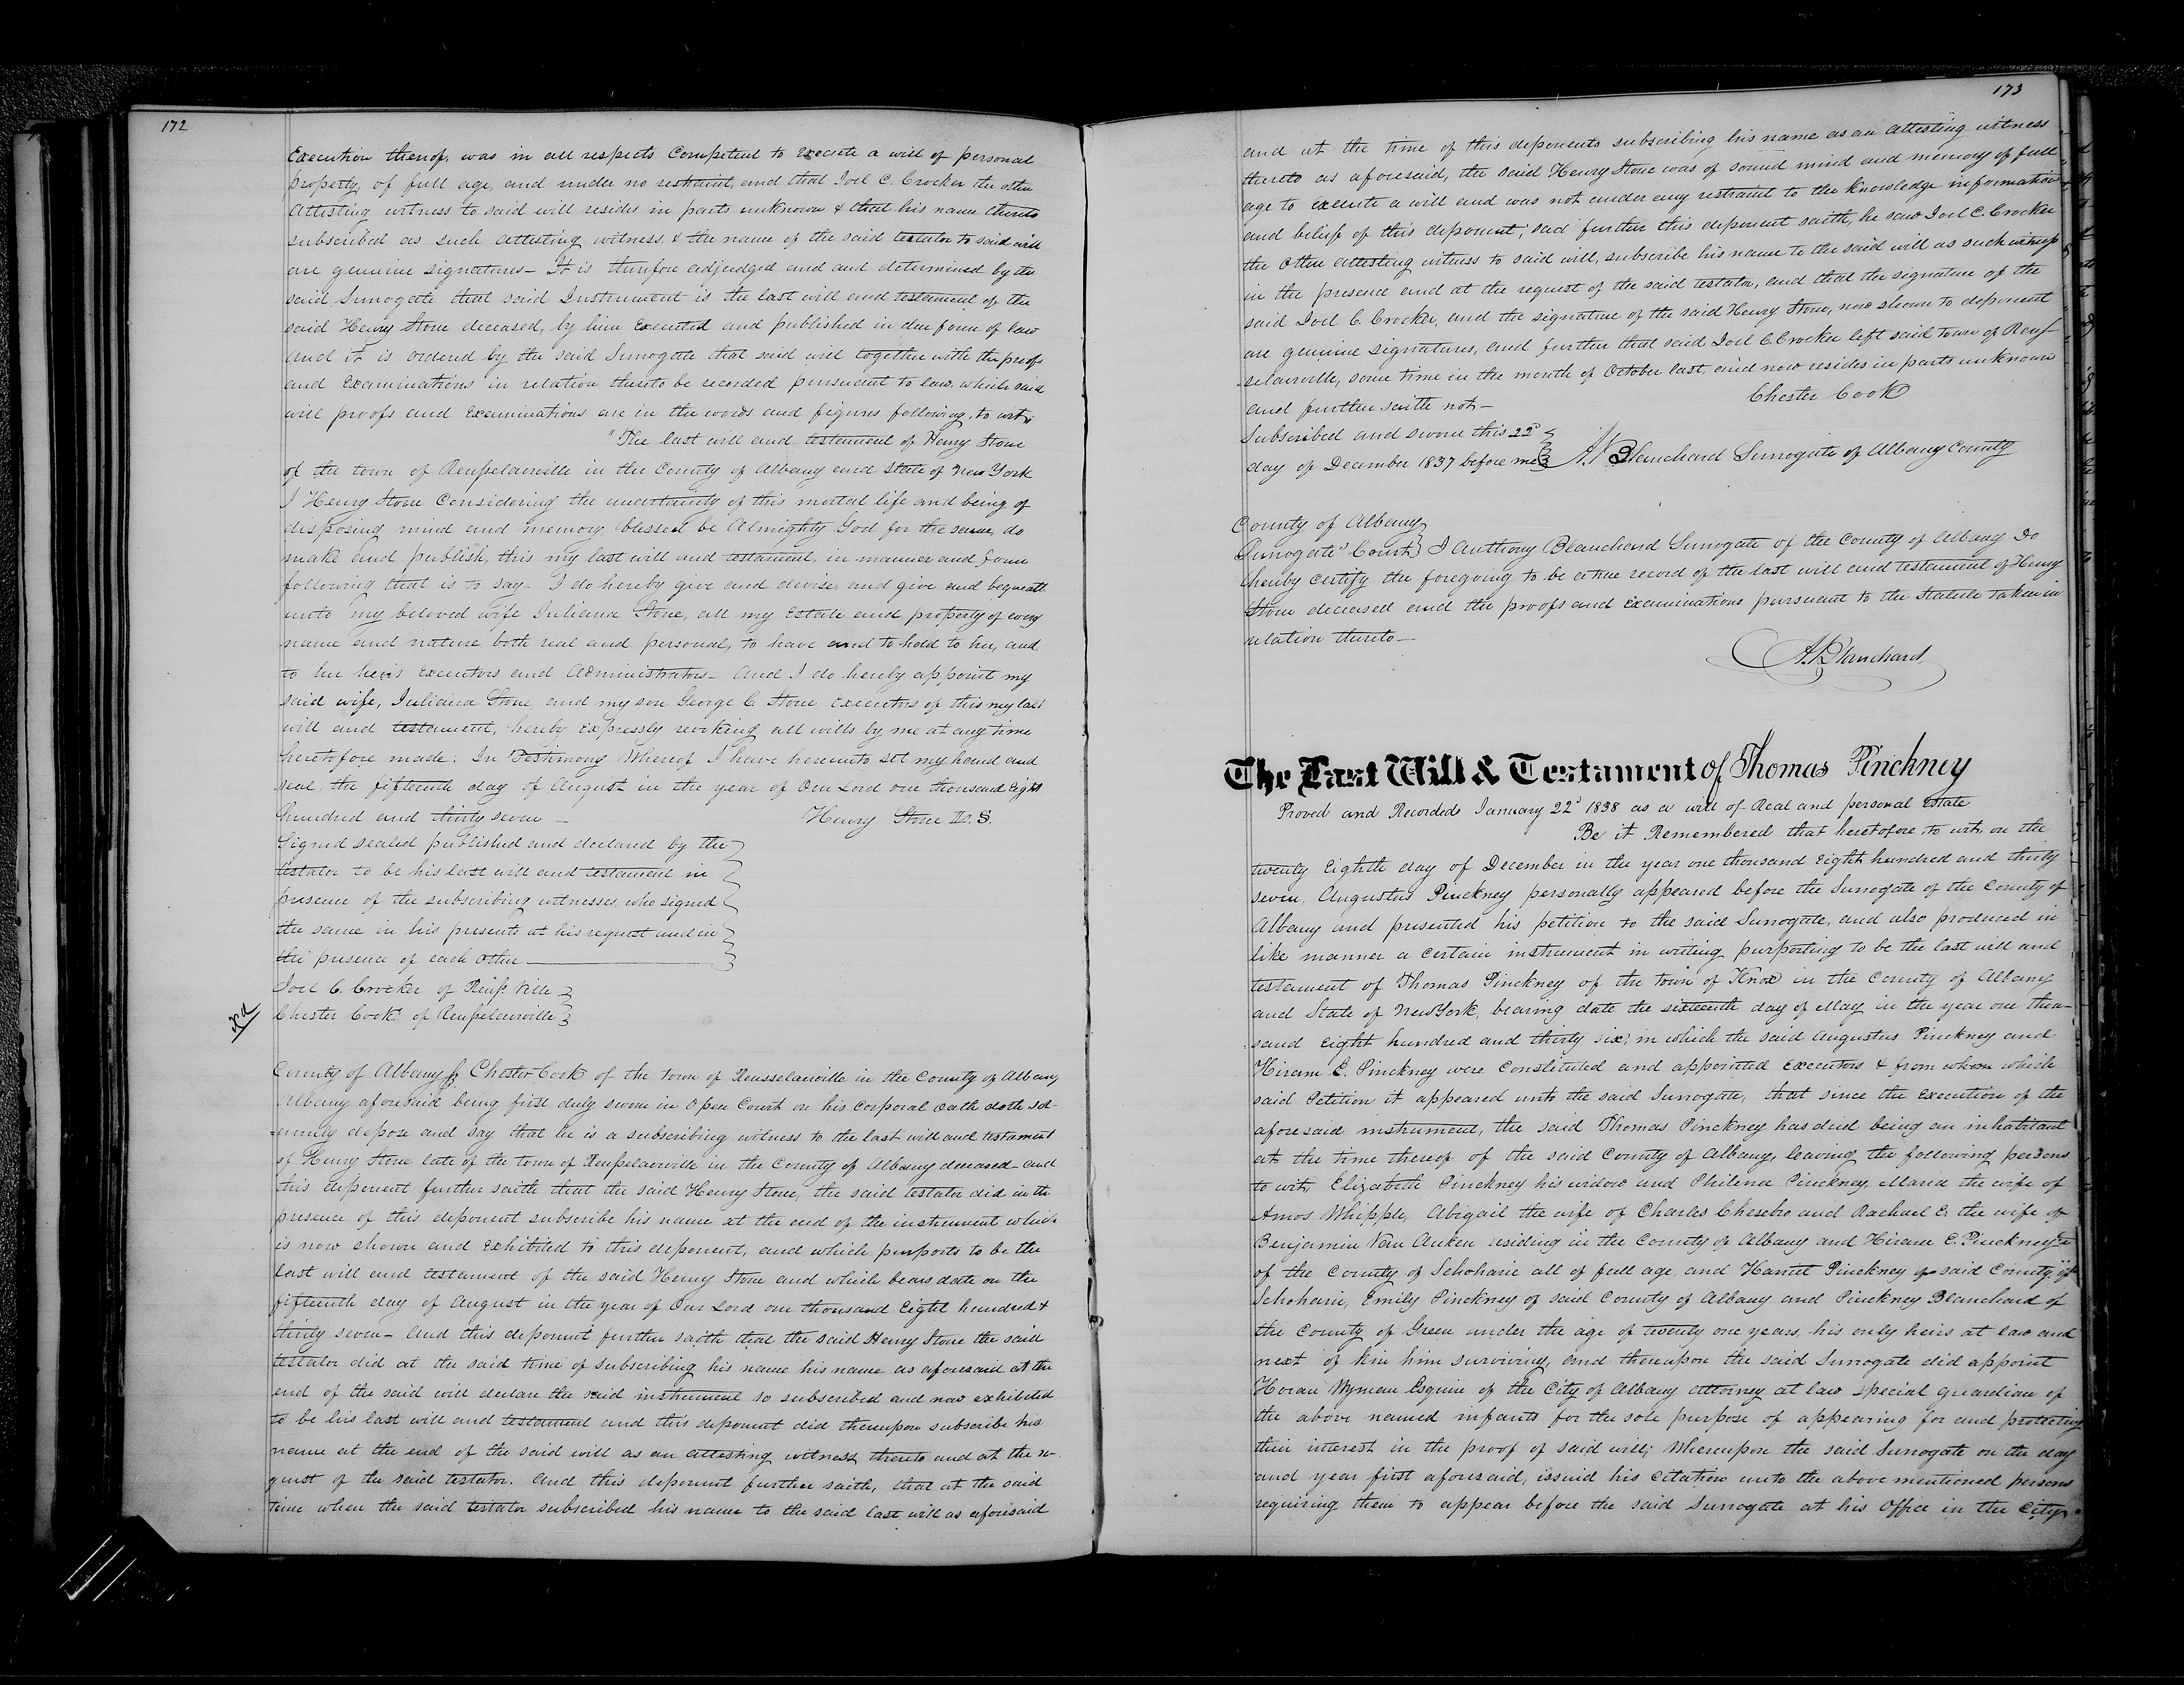 172
Execution thereof, was in all respects Competent to execute a will of personal
property, of full age, and under no restraint, and that Joel C. Crocker the other
attesting witness to said will resides in parts unknown & that his name thereto
subscribed as such attesting witness, & the name of the said testator to said will
are genuine signatures – It is therefore adjudged and and determined by the
said Surrogate that said Instrument is the last will and testament of the
said Henry Stone deceased, by him Executed and published in due form of law
and it is ordered by the said Surrogate that said will together with the proofs
and Examinations in relation thereto be recorded pursuant to law, which said
will proofs and Examinations are in the words and figures following, to wit,
"The last will and testament of Henry Stone
of the town of Rensselaerville in the County of Albany and State of New York
I Henry Stone Considering the uncertainty of this mortal life and being of
disposing mind and memory, blessed be Almighty God for the same, do
make and publish, this my last will and testament, in manner and form
following that is to say – I do hereby give and devise, and give and bequeath
unto my beloved wife Juliana Stone, all my Estate and property of every
name and nature both real and personal, to have and to hold to her, and
to her heirs executors and Administrators – And I do hereby appoint my
said wife, Juliana Stone and my son George C Stone Executors of this my last
will and testament, hereby Expressly revoking all wills by me at any time
heretofore made: In Testimony Whereof I have hereunto set my hand and
seal, the fifteenth day of August in the year of Our Lord one thousand Eight
hundred and thirty seven – Henry Stone L. S.
Signed sealed published and declared by the
testator to be his last will and testament in
presence of the subscribing witnesses, who signed
the same in his presents at his request and in
the presence of each other
Joel C. Crocker of Renss. Ville
Chester Cook of Rensselaerville
County of Albany ss Chester Cook of the town of Rensselaerville in the County of Albany
Albany aforesaid being first duly sworn in Open Court on his Corporal oath doth sol-
-emnly depose and say that he is a subscribing witness to the last will and testament
of Henry Stone late of the town of Rensselaerville in the County of Albany deceased – and
this deponent further saith that the said Henry Stone, the said testator did in the
presence of this deponent subscribe his name at the end of the instrument which
is now shown and Exhibited to this deponent, and which purports to be the
last will and testament of the said Henry Stone and which bears date on the
fifteenth day of August in the year of Our Lord one thousand Eight hundred &
thirty seven – And this deponent further saith that the said Henry Stone the said
testator did at the said time of subscribing his name his name as aforesaid at the
end of the said will declare the said instrument so subscribed and now exhibited
to be his last will and testament and this deponent did thereupon subscribe his
name at the end of the said will as an attesting witness thereto and at the re-
quest of the said testator. And this deponent further saith, that at the said
time when the said testator subscribed his name to the said last will as aforesaid
173
and at the time of this deponents subscribing his name as an attesting witness
thereto as aforesaid, the said Henry Stone was of sound mind and memory of full
age to execute a will and was not under any restraint to the knowledge information
and belief of this deponent; said further this deponent saith, he saw Joel C. Crocker
the other attesting witness to said will, subscribe his name to the said will as such witness
in the presence and at the request of the said testator, and that the signature of the
said Joel C. Crocker, and the signature of the said Henry Stone, now shown to deponent
are genuine signatures, and further that said Joel C. Crocker left said town of Rens-
selaerville, some time in the month of October last, and now resides in parts unknown
and further saith not – Chester Cook
Subscribed and sworn this 22d
day of December 1837 before me A. Blanchard Surrogate of Albany County
County of Albany
Surrogate's Court I Anthony Blanchard Surrogate of the County of Albany Do
hereby certify the foregoing to be a true record of the last will and testament of Henry
Stone deceased and the proofs and examinations pursuant to the Statute taken in
relation thereto –
A. Blanchard
The Last Will & Testament of Thomas Pinckney
Proved and Recorded January 22d 1838 as a will of Real and personal Estate
Be it Remembered that heretofore, to wit, on the
twenty Eighth day of December in the year one thousand Eight hundred and thirty
seven, Augustus Pinckney personally appeared before the Surrogate of the County of
Albany and presented his petition to the said Surrogate, and also produced in
like manner a certain instrument in writing purporting to be the last will and
testament of Thomas Pinckney of the town of Knox in the County of Albany
and State of New York, bearing date the sixteenth day of May in the year one thou-
sand Eight hundred and thirty six, in which the said Augustus Pinckney and
Hiram E. Pinckney were Constituted and appointed Executors & from whom which
said Petition it appeared unto the said Surrogate, that since the Execution of the
aforesaid instrument, the said Thomas Pinckney has died being an inhabitant
at the time thereof of the said County of Albany, leaving the following persons
to wit, Elizabeth Pinckney his widow and Philena Pinckney, Maria the wife of
Amos Whipple, Abigail the wife of Charles Chesebro and Rachael E. the wife of
Benjamin Van Auken residing in the County of Albany and Hiram E. Pinckney
of the County of Schoharie all of full age, and Harriet Pinckney of said County of
Schoharie, Emily Pinckney of said County of Albany and Pinckney Blanchard of
the County of Green under the age of twenty one years, his only heirs at law and
next of kin him surviving, and thereupon the said Surrogate did appoint
Wyman Esquire of the City of Albany attorney at law special guardian of
the above named infants for the sole purpose of appearing for and protecting
their interest in the proof of said will; Whereupon the said Surrogate on the day
and year first aforesaid, issued his citation unto the above mentioned persons
requiring them to appear before the said Surrogate at his Office in the City